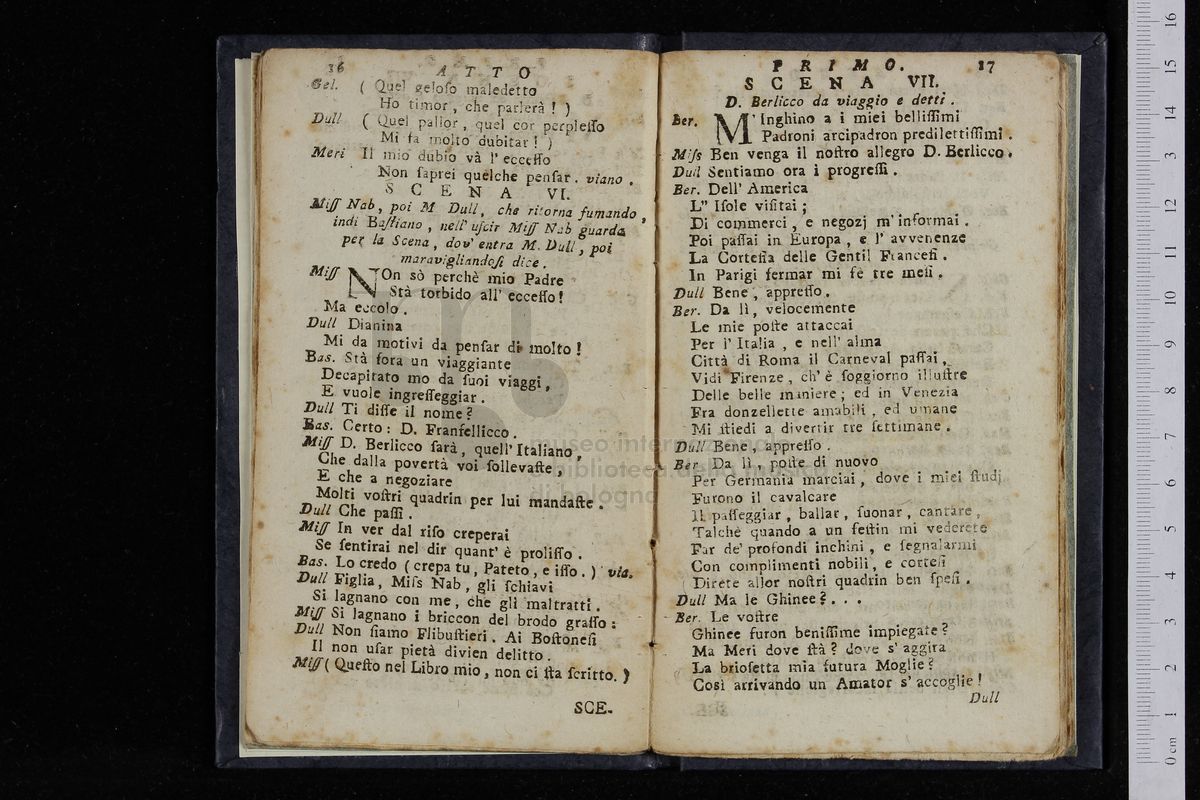 36 ATTO
Gel. ( Quel geloſo maledetto
Ho timor, che parlerà ! )
Dull ( Quel pallor, quel cor perpleſſo
Mi fa molto dubitar ! )
Meri Il mio dubio và l' ecceſſo
Non ſaprei quelche penſar. viano.
SCENA VI.
Miſſ Nab, poi M Dull, che ritorna fumando,
indi Baſtiano, nell' uſcir Miſſ Nab guarda
per la Scena, dov' entra M. Dull, poi
maravigliandoſi dice.
Miſſ NOn sò perchè mio Padre
Stà torbido all' ecceſſo!
Ma eccolo.
Dull Dianina
Mi da motivi da penſar di molto !
Bas. Stà fora un viaggiante
Decapitato mo da ſuoi viaggi,
E vuole ingreſſeggiar.
Dull Ti diſſe il nome?
Bas. Certo: D. Franfellicco.
Miſſ D. Berlicco ſarà, quell' Italiano,
Che dalla povertà voi ſollevaſte,
E che a negoziare
Molti voſtri quadrin per lui mandaſte.
Dull Che paſſi.
Miſſ In ver dal riſo creperai
Se ſentirai nel dir quant' è proliſſo.
Bas. Lo credo ( crepa tu, Pateto, e iſſo. ) via.
Dull Figlia, Miſs Nab, gli ſchiavi
Si lagnano con me, che gli maltratti.
Miſſ Si lagnano i briccon del brodo graſſo:
Dull Non ſiamo Flibuſtieri. Ai Boſtoneſi
Il non uſar pietà divien delitto.
Miſſ ( Queſto nel Libro mio, non ci ſta ſcritto. )
SCE-
PRIMO. 17
SCENA VII.
D. Berlicco da viaggio e detti.
Ber. M'Inghino a i miei belliſſimi
Padroni arcipadron predilettiſſimi.
Miſs Ben venga il noſtro allegro D. Berlicco.
Dull Sentiamo ora i progreſſi.
Ber. Dell' America
L'' Iſole viſitai ;
Di commerci, e negozj m' informai.
Poi paſſai in Europa, e l' avvenenze
La Corteſia delle Gentil Franceſi.
In Parigi fermar mi fè tre meſi.
Dull Bene, appreſſo.
Ber. Da lì, velocemente
Le mie poſte attaccai
Per l' Italia, e nell' alma
Città di Roma il Carneval paſſai,
Vidi Firenze, ch' è ſoggiorno illuſtre
Delle belle maniere; ed in Venezia
Fra donzellette amabili, ed umane
Mi ſtiedi a divertir tre ſettimane.
Dull Bene, appreſſo.
Ber Da lì, poſte di nuovo
Per Germania marciai, dove i miei ſtudj
Furono il cavalcare
Il paſſeggiar, ballar, ſuonar, cantare,
Talchè quando a un feſtin mi vederete
Far de' profondi inchini, e ſegnalarmi
Con complimenti nobili, e corteſi
Direte allor noſtri quadrin ben ſpeſi.
Dull Ma le Ghinee?...
Ber. Le voſtre
Ghinee furon beniſſime impiegate?
Ma Meri dove ſtà? dove s' aggira
La brioſetta mia futura Moglie?
Così arrivando un Amator s' accoglie!
Dull
museo internazionale
biblioteca della musica
di bologna
0 cm 1 2 3 4 5 6 7 8 9 10 11 12 13 14 15 16